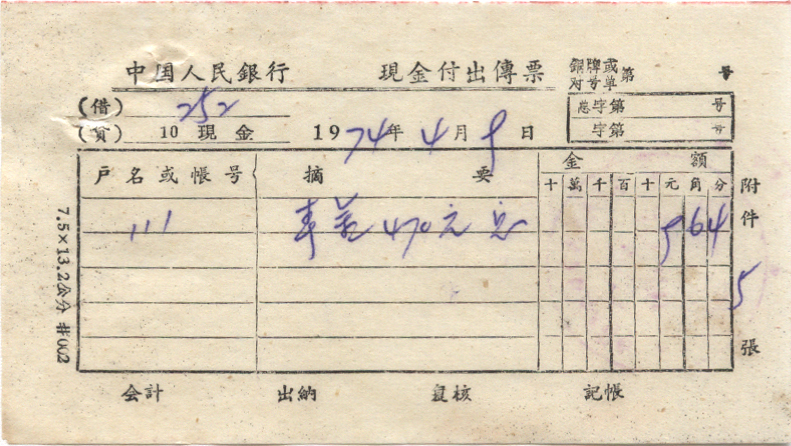 中国人民銀行 現金付出傳票 銅牌或对号单第 号
(借) 252 总字第 号
(貸) 10 現金 1974年4月9日 字第 号
戶名或帳号 摘要 金額
十萬千百十元角分
111 470元 9 6 4
附件 5 張
7.5×13.2公分 #002
会計 出納 复核 記帳